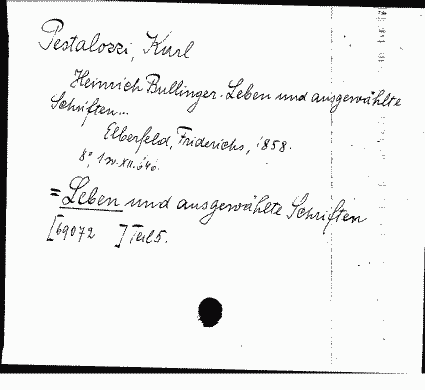 Pestalozzi, Karl
Heinrich Bullinger. Leben und ausgewählte
Schriften...
Elberfeld, Friderichs, 1858.
8°, 1 w. XII. 646.
= Leben und ausgewählte Schriften
[69072 ] Teil 5.